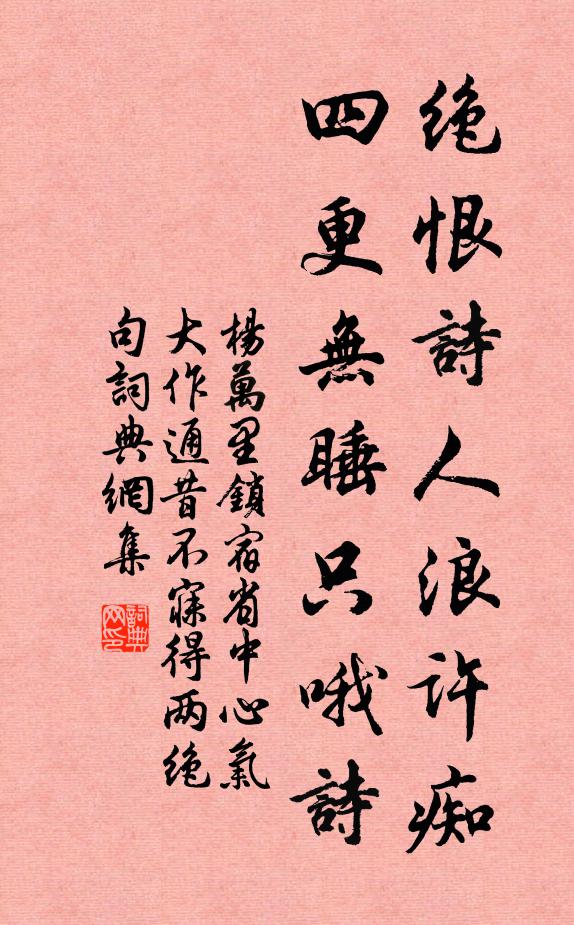 绝恨詩人浪许痴
四更無睡只哦詩
楊萬里鎖宿省中心氣
大作通昔不寐得两绝
句詞典網集
詞典网印